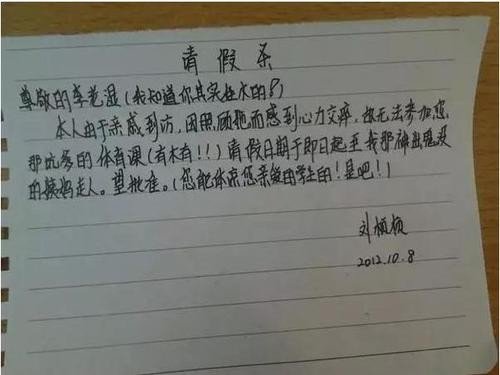 请假条
尊敬的李老湿(我知道你其实挺水的!)
本人由于亲戚到访,因照顾她而感到心力交瘁,故无法参加您
那坑爹的体育课(有木有!!)请假日期于即日起至我那神出鬼没
的姨妈走人。望批准。(您能体谅您亲爱的学生的!是吧!)
刘
2012.10.8